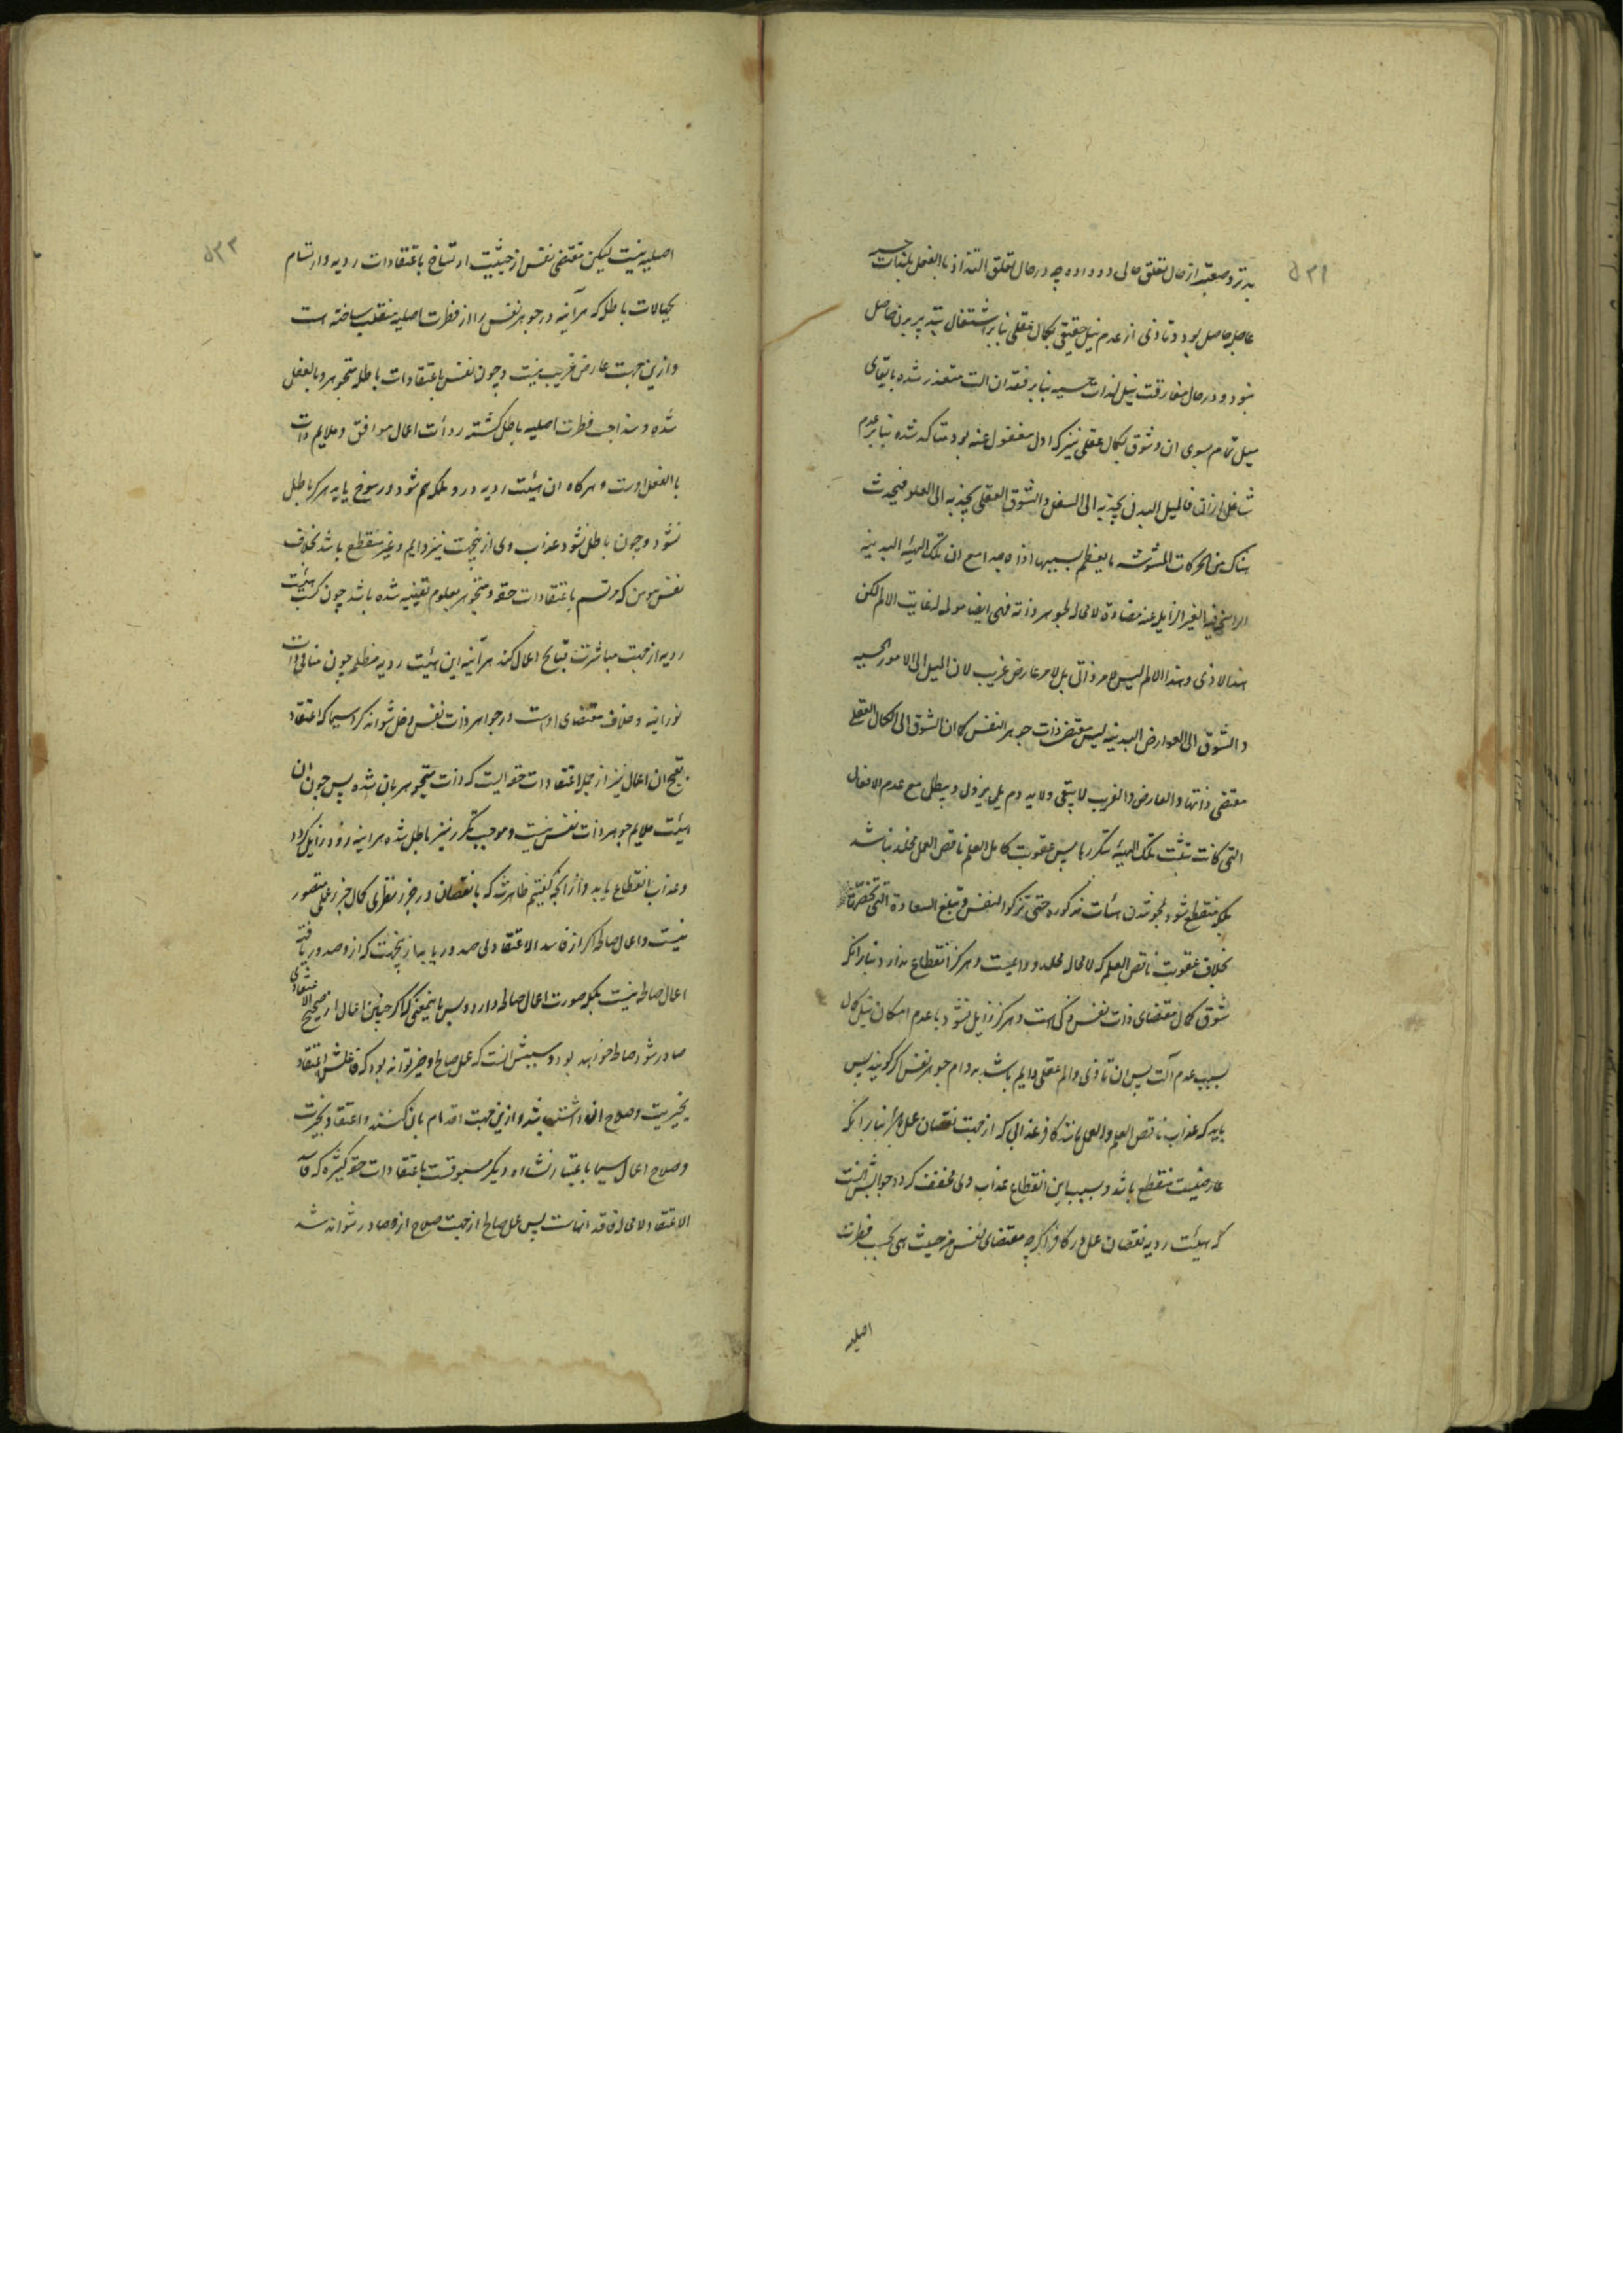 ۵۳۱
بدتر و صعبتر از حال تعلق حالی رو داده چه در حال تعلق التذاذ بالفعل بلذات حسیه
عاجله حاصل بود و تاذی از عدم نیل حقیقی بکمال عقلی بنا بر اشتغال بتدبیر بدن حاصل
نبود و در حال مفارقت نیل لذات حسیه بنا بر فقدان الت متعذر شده با بقای
میل تمام بسوی ان و شوق بکمال عقلی نیز که اول مغفول عنه بود متاکد شده بنا بر عدم
شاغل ازان فالمیل البدنی یجذبه الی السفل و الشوق العقلی یجذبه الی العلو فیحدث
هناک من الحرکات المشوشه ما یعظم بسببها اذاه جدا مع ان تلک الهیئه البدنیه
الراسخه فیه الغیر الزایله عنه مضادة لا محاله لجوهر ذاته فهی ایضا مولمه له غایت الالم لکن
هذا الاذی و هذا الالم لیس لامر ذاتی بل لامر عارض غریب لان المیل الی الامور الحسیه
و الشوق الی العوارض البدنیه لیس مقتضی ذات جوهر النفس کما ان الشوق الی الکمال العقلی
مقتضی ذاتها و العارض و الغریب لا یبقی و لا یدوم بل یزول و یبطل مع عدم الافعال
التی کانت تثبت تلک الهیئه بتکررها پس عقوبت کامل العلم ناقص العمل مخلد نباشد
بلکه منقطع شود بمحو شدن هیئات مذکوره حتی تزکو النفس و تبلغ السعادة التی تخصها
بخلاف عقوبت ناقص العلم که لا محاله مخلد و دائمیست و هرکز انقطاع ندارد بنا برانکه
شوق کمال مقتضای ذات نفس زکی است و هرکز زایل نشود با عدم امکان نیل کمال
بسبب عدم آلت پس ان تاذی و الم عقلی دایم باشد بدوام جوهر نفس اکر کویند پس
باید که عذاب ناقص العلم و العمل مانند کافر عذابی که از جهت نقصان عمل دارد بنا برانکه
عارضیست منقطع باشد و بسبب این انقطاع عذاب وی مخفف کردد جوابش انست
که هیئت ردیه نقصان عمل در کافر اکرچه مقتضای نفس من حیث هی بحسب فطرت
اصلیه
۵۳۲
اصلیه نیست لیکن مقتضی نفس از حیثیت ارتساخ باعتقادات ردیه و ارتسام
بخیالات باطله که هرآینه در جوهر نفس را از فطرت اصلیه منقلب ساخته است
و ازین جهت عارض غریب نیست و چون نفس باعتقادات باطله متجوهر و بالفعل
شده و مذاجب فطرت اصلیه باطل کشته ردأت اعمال موافق و ملایم ذات
بالفعل اوست و هرکاه ان هیئت ردیه در و ملکه هم شود و رسوخ یابد هرکز باطل
نشود و چون باطل نشود عذاب وی ازینجهت نیز دایم و غیر منقطع باشد بخلاف
نفس مومن که مرتسم باعتقادات حقه و متجوهر بعلوم یقینیه شده باشد چون کسب هیئت
ردیه از جهت مباشرت قبایح اعمال کند هرآینه این هیئت ردیه مظلمه چون منافی ذات
نورانیه و خلاف مقتضای اوست در جوهر ذات نفس دخل نتواند کرد سیما که اعتقاد
بقبح ان اعمال نیز از جمله اعتقادات حقه ایست که ذات متجوهر بان شده پس چون ان
هیئت ملایم جوهر ذات نفس نیست و موجب تکرر نیز باطل شده هراینه زود زایل کردد
و عذاب انقطاع یابد و ازانچه کفتیم ظاهر شد که با نقصان در جزء نظری کمال جزء عملی متصور
نیست و اعمال صالحه اکر از فاسد الاعتقادی صدور یابد ازینجهت که ازو صدور یافته
اعمال صالحه نیست بلکه صورت اعمال صالحه دارد پس باینمعنی که اکر چنین اعمال از صحیح الاعتقادی
صادر شود صالحه خواهد بود و سببش انست که عمل صالح و خیر تواند بود که فاعلش اعتقاد
بخیریت و صلاح ان داشته باشد و ازین جهت اقدام بان کند و اعتقاد بخیریت
و صلاح اعمال سیما باعتبار نشاه دیکر مسبوقست باعتقادات حقه کثیره که فاسد
الاعتقاد لا محاله فاقد انهاست پس عمل صالح از جهت صلاح ازو صادر نتواند شد